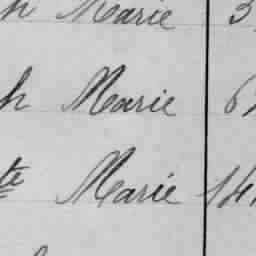 h Marie 3
h Marie 6
te Marie 14